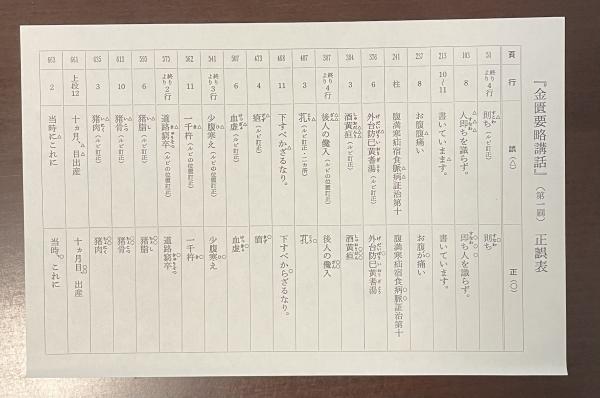 『金匱要略講話』（第一刷）正誤表
頁 行 誤(△) 正(○)
51 終りより4行 則ち（ルビ訂正） 則ち
103 8 人即ちを識らず。 即ち人を識らず。
213 10〜11 書いていまます。 書いています。
237 8 お腹腹痛い お腹が痛い
241 柱 腹満寒疝宿食脈病証治第十 腹満寒疝宿食病脈証治第十
376 6 外台防已黄耆湯（ルビ訂正） 外台防已黄耆湯
384 3 酒黄疸（ルビ訂正） 酒黄疸
387 終りより4行 後人の儳入 後人の儳入
3 孔（ルビ訂正・二ヵ所） 孔
468 11 下すべかざるなり。 下すべからざるなり。
473 4 （ルビ訂正）
507 6 血虚（ルビの位置訂正） 血虚
541 終りより3行 少腹寒え（ルビの位置訂正） 少腹寒え
562 11 一千杵（ルビの位置訂正） 一千杵
575 終りより2行 道路窮卒（ルビの位置訂正） 道路窮卒
595 6 猪脂（ルビ訂正） 猪脂
613 10 猪骨（ルビ訂正） 猪骨
635 3 猪肉（ルビ訂正） 猪肉
661 上段12 十ヵ月、目出産 十ヵ月目 出産
663 2 当時にこれに 当時、これに